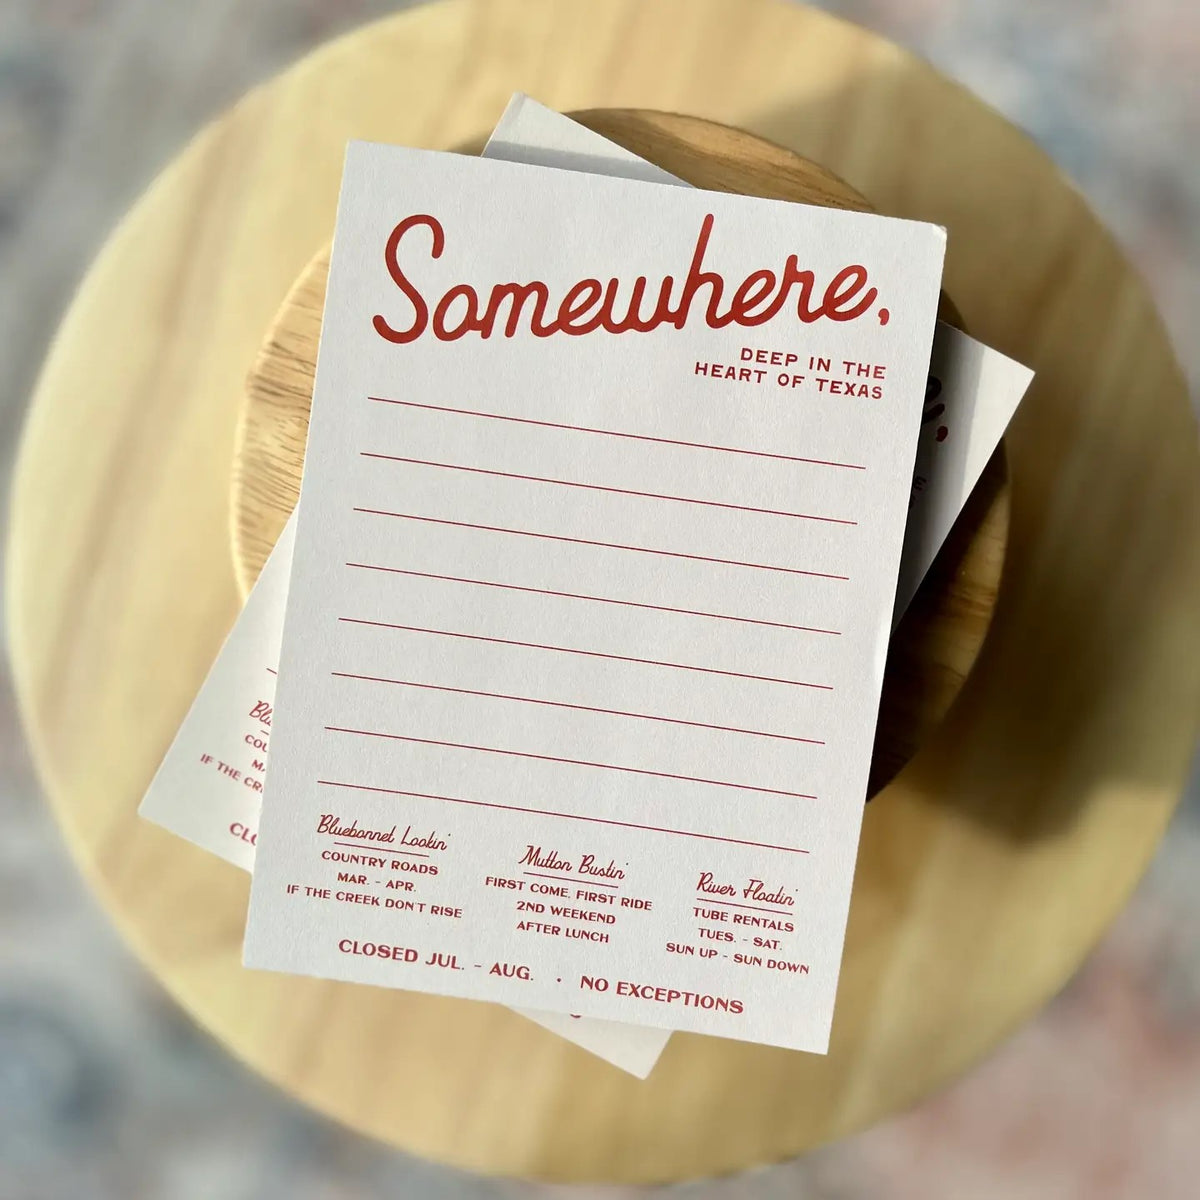 Somewhere,
DEEP IN THE
HEART OF TEXAS
Bluebonnet Lookin'
COUNTRY ROADS
MAR. - APR.
IF THE CREEK DON'T RISE
Mutton Bustin'
FIRST COME, FIRST RIDE
2ND WEEKEND
AFTER LUNCH
River Floatin'
TUBE RENTALS
TUES. - SAT.
SUN UP - SUN DOWN
CLOSED JUL. - AUG. · NO EXCEPTIONS
IF THE